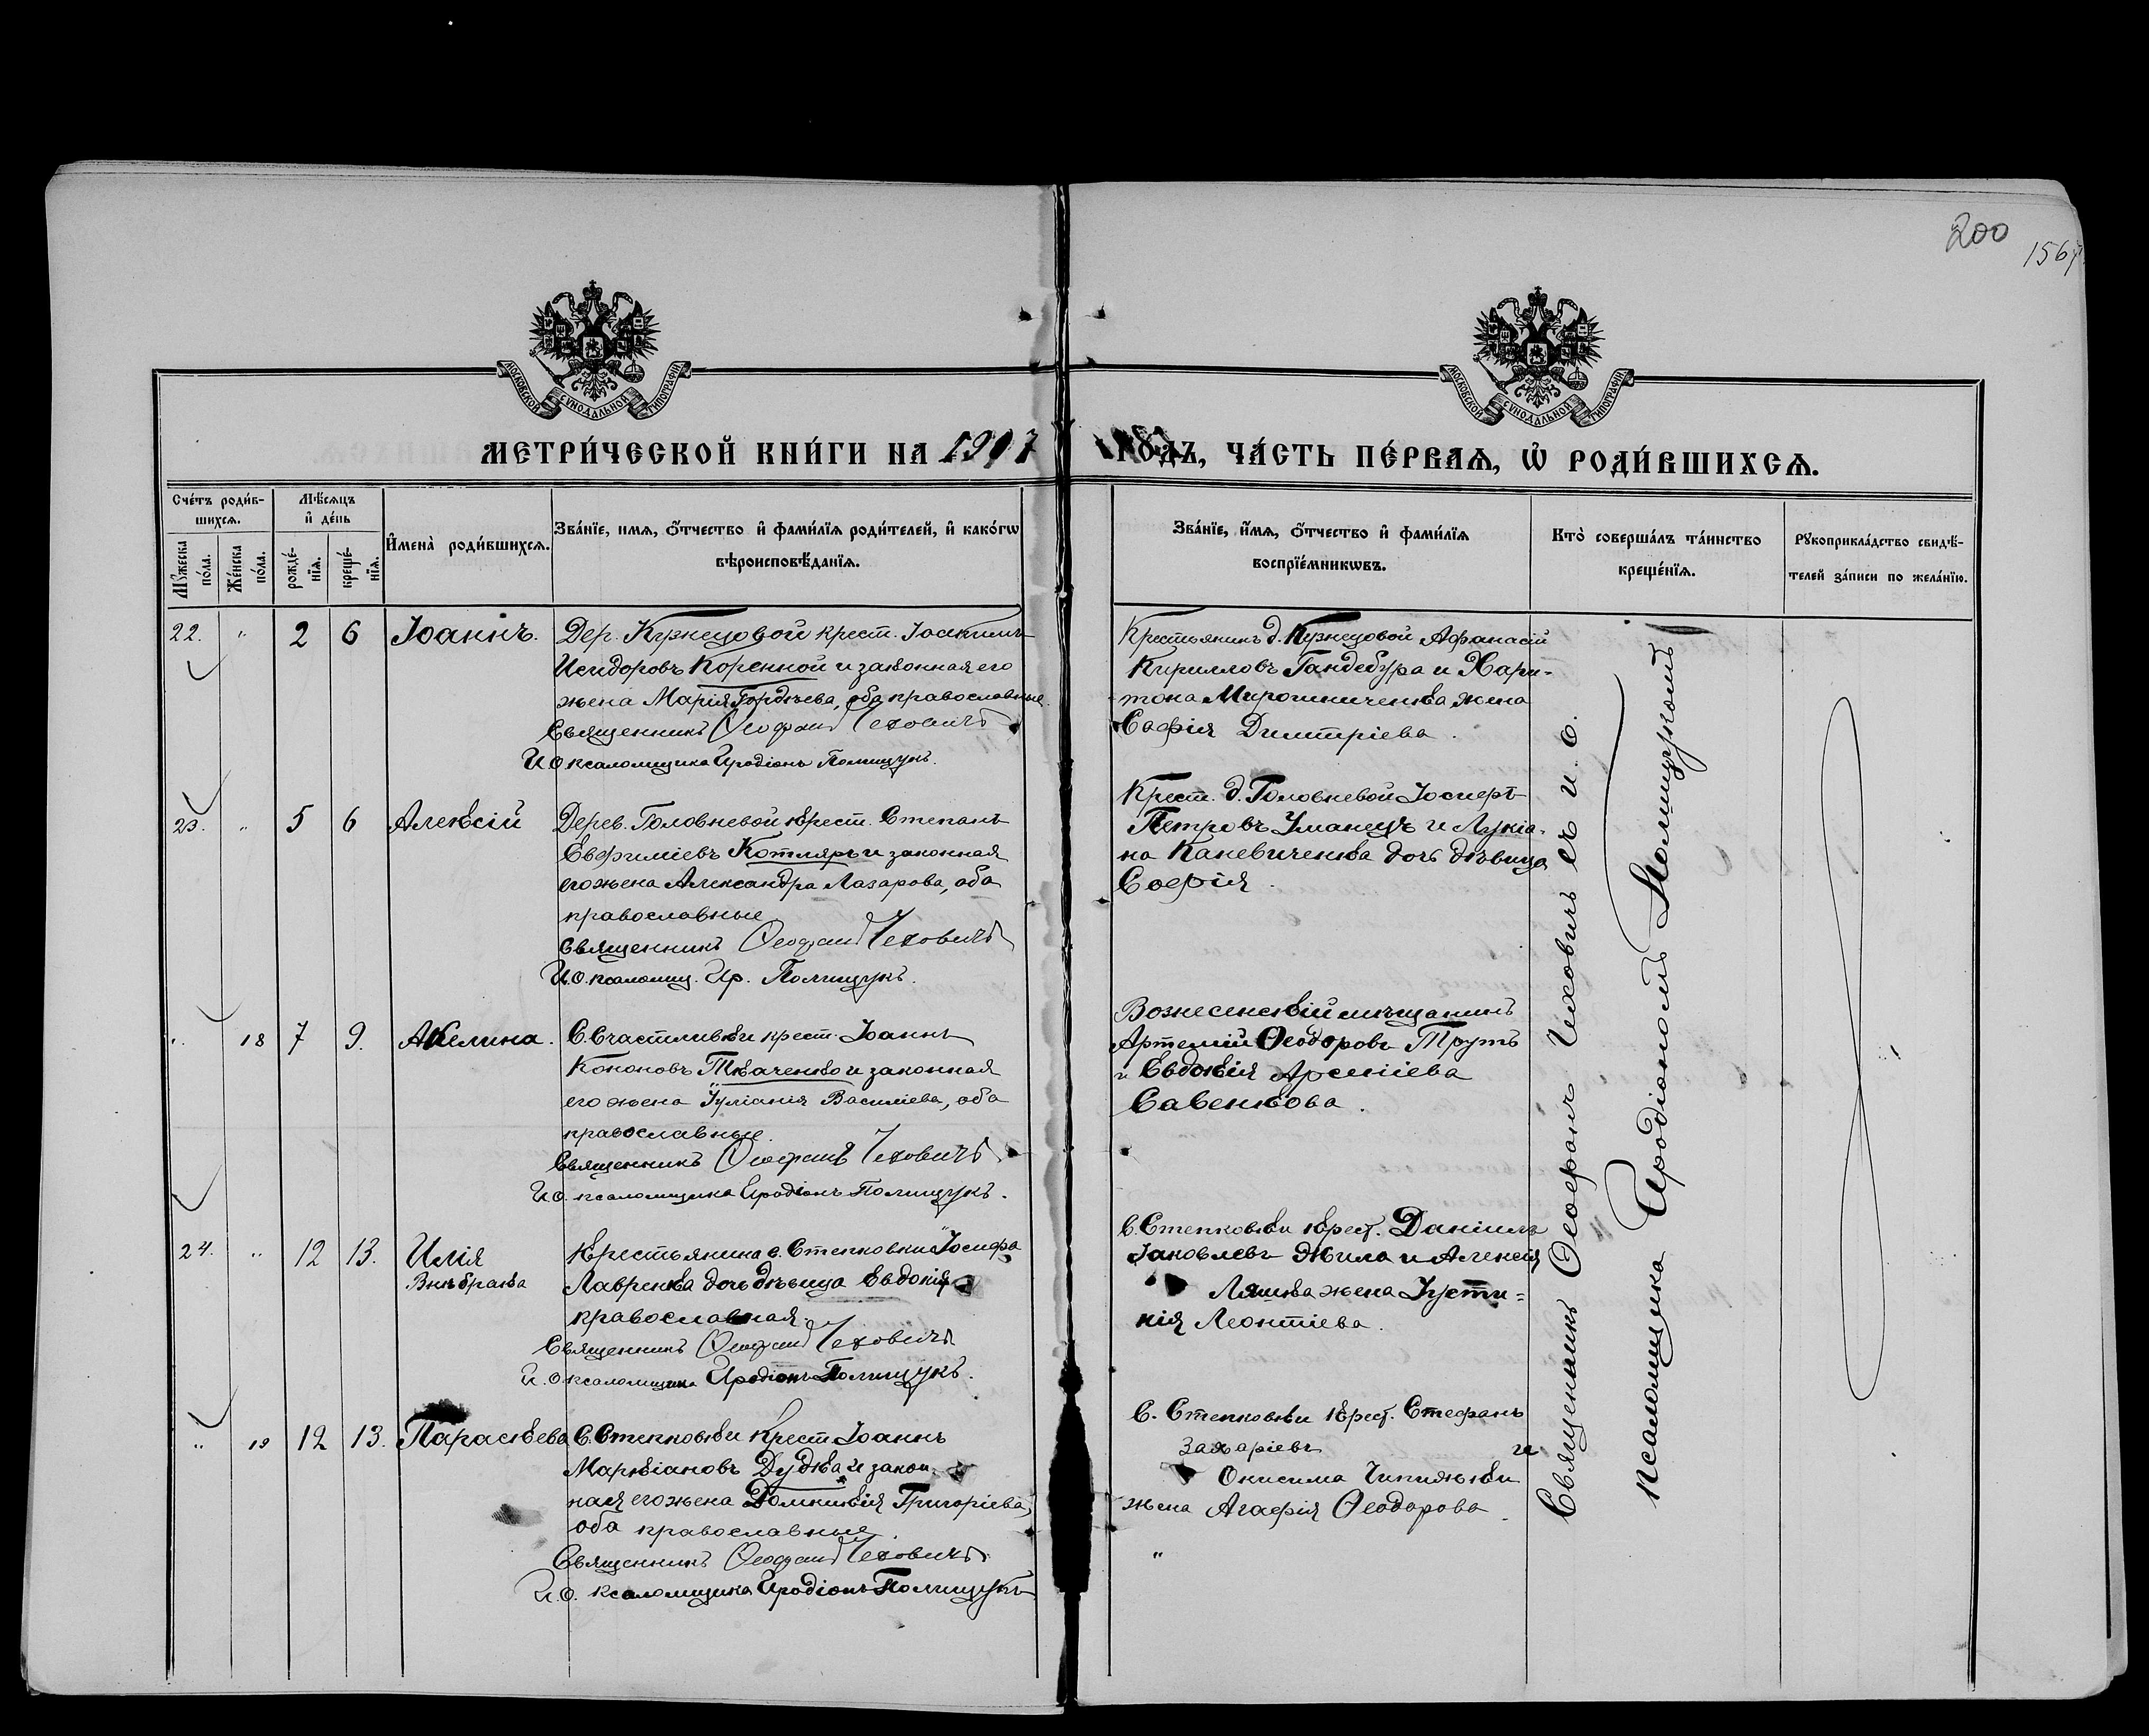 200
1567
МОСКОВСКОЙ СѴНОДАЛЬНОЙ ТИПОГРАФІИ
МОСКОВСКОЙ СѴНОДАЛЬНОЙ ТИПОГРАФІИ
МЕТРИ́ЧЕСКОЙ КНИ́ГИ НА 1907 ГО́ДЪ, ЧА́СТЬ ПЕ́РВАѦ, Ѡ РОДИ́ВШИХСѦ.
Сче́тъ роди́в-
шихсѧ.
Мѣ́сѧцъ
и҆ де́нь
Мꙋ́жеска
по́ла.
Же́нска
по́ла.
рожде́-
нїѧ.
креще́-
нїѧ.
И҆мена̀ роди́вшихсѧ.
Зва́нїе, имѧ, о҆́тчество и҆ фами́лїѧ роди́телей, и҆ како́гѡ
вѣ́роисповѣ́данїѧ.
Зва́нїе, и҆́мѧ, о҆́тчество и҆ фами́лїѧ
воспрїе́мникѡвъ.
Кто̀ соверша́лъ та́инство
креще́нїѧ.
Рꙋкоприкла́дство свидѣ́-
телей за́писи по жела́нїю.
22. " 2 6 Іоаннъ.
Дер. Кузнецовой крест. Іоакимъ
Исидоровъ Коренной и законная его
жена Марія Гордѣева, оба православные.
Священникъ Ѳеофанъ Чеховичъ
И.О. псаломщика Иродіонъ Полищукъ.
Крестьянинъ д. Кузнецовой Афанасій
Кирилловъ Гандебура и Хари-
тона Мирошниченка жена
Софія Димитріева.
23. " 5 6 Алексій
Дерев. Головневой крест. Степанъ
Евфиміевъ Котляръ и законная
его жена Александра Лазарова, оба
православные
Священникъ Ѳеофанъ Чеховичъ
И.О. псаломщ. Ир. Полищукъ.
Крест. д. Головневой Іосифъ
Петровъ Уманецъ и Лукіа-
на Каневиченка дочь дѣвица
Софія.
" 18 7 9. Акелина.
С. Счастливки крест. Іоаннъ
Кононовъ Ткаченко и законная
его жена Іуліанія Василіева, оба
православные.
Священникъ Ѳеофанъ Чеховичъ
И.О. псаломщика Иродіонъ Полищукъ.
Вознесенскій мѣщанинъ
Артемій Ѳеодоровъ Трутъ
и Евдокія Арсеніева
Савенкова.
24. " 12 13. Илія
Внѣбрачн.
Крестьянина с. Степковки Іосифа
Лавренка дочь дѣвица Евдокія
православная.
Священникъ Ѳеофанъ Чеховичъ
И.О. псаломщика Иродіонъ Полищукъ.
С. Степковки крест. Даніилъ
Іаковлевъ Жила и Алексія
Ляшка жена Іусти-
нія Леонтіева.
" 19 12 13. Параскева
С. Степковки крест. Іоаннъ
Маркіановъ Дудка и закон-
ная его жена Домникія Григоріева,
оба православные.
Священникъ Ѳеофанъ Чеховичъ
И.О. псаломщика Иродіонъ Полищукъ
С. Степковки крест. Стефанъ
Захаріевъ и
Онисима Чипижки
жена Агафія Ѳеодорова.
"
Священникъ Ѳеофанъ Чеховичъ съ и. о.
псаломщика Иродіономъ Полищукомъ